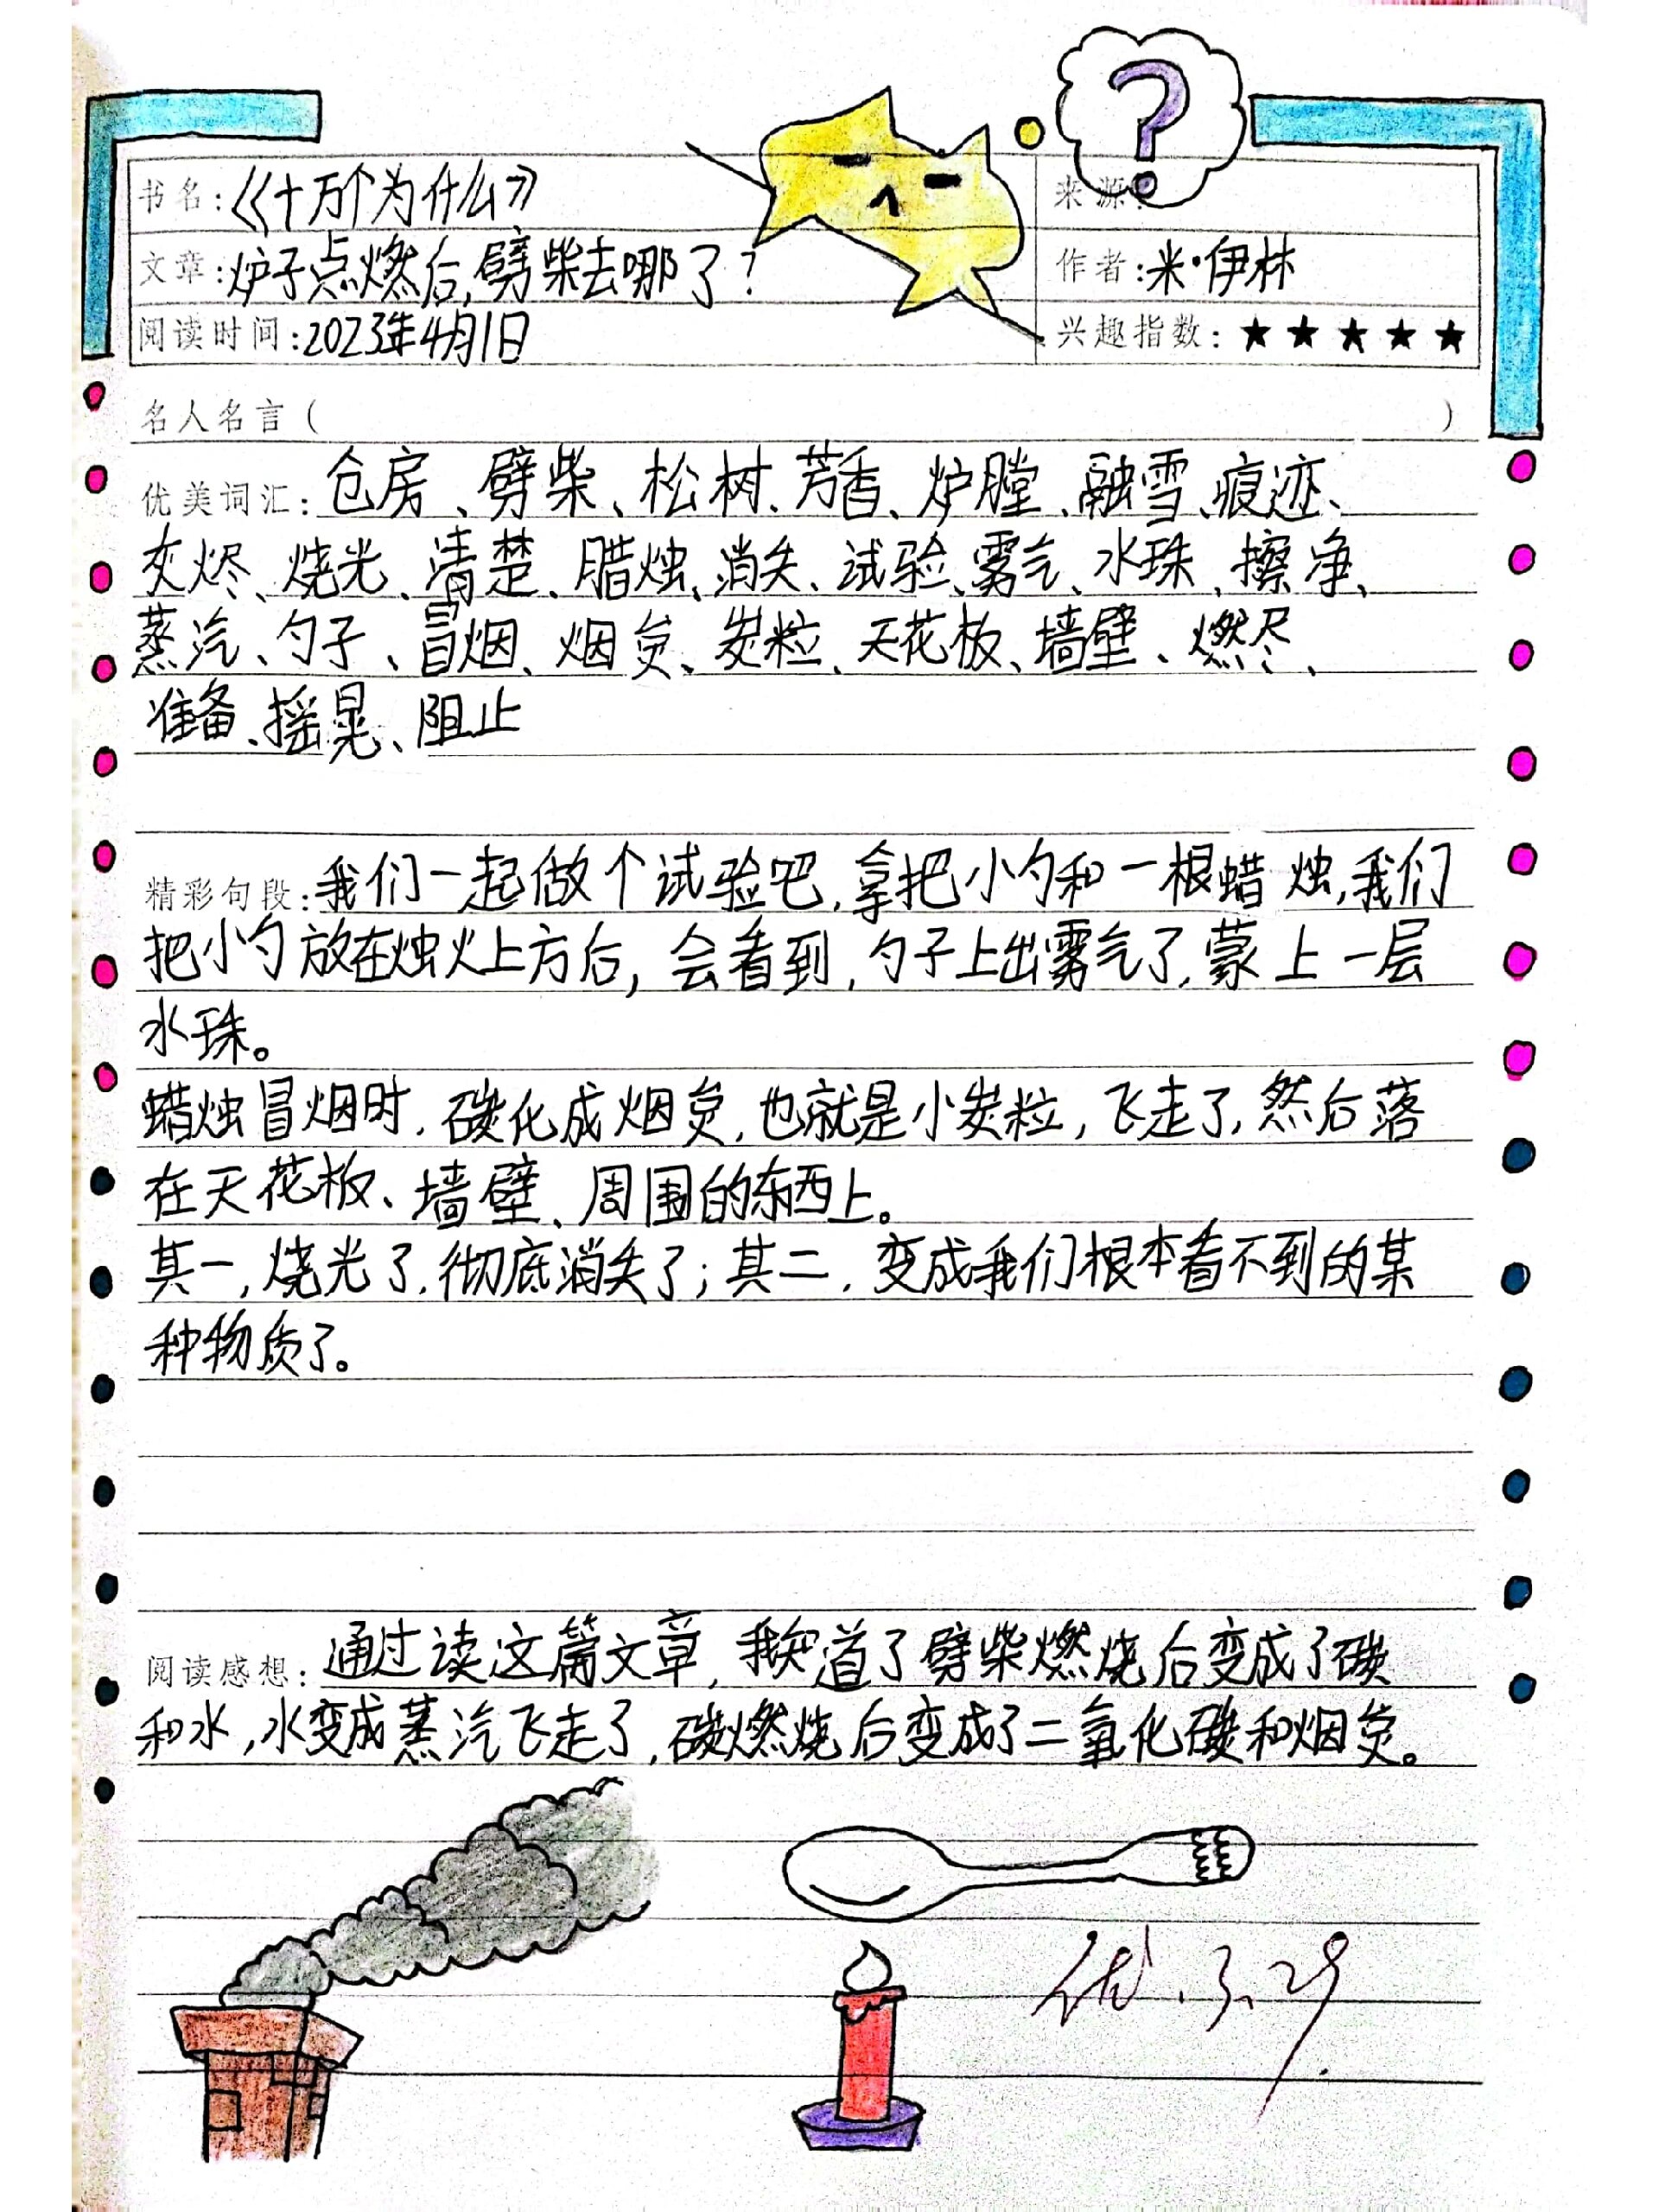 书名:《十万个为什么》
来源:
文章:炉子点燃后,劈柴去哪了?
作者:米·伊林
阅读时间:2023年4月1日
兴趣指数:★★★★★
名人名言( )
优美词汇:仓房、劈柴、松树、芳香、炉膛、融雪、痕迹、
灰烬、烧光、清楚、腊烛、消失、试验、雾气、水珠、擦净、
蒸汽、勺子、冒烟、烟炱、炭粒、天花板、墙壁、燃尽、
准备、摇晃、阻止
精彩句段:我们一起做个试验吧,拿把小勺和一根蜡烛,我们
把小勺放在烛火上方后,会看到,勺子上出雾气了,蒙上一层
水珠。
蜡烛冒烟时,碳化成烟炱,也就是小炭粒,飞走了,然后落
在天花板、墙壁、周围的东西上。
其一,烧光了,彻底消失了;其二,变成我们根本看不到的某
种物质了。
阅读感想:通过读这篇文章,我知道了劈柴燃烧后变成了碳
和水,水变成蒸汽飞走了,碳燃烧后变成了二氧化碳和烟炱。
?
优.3.29